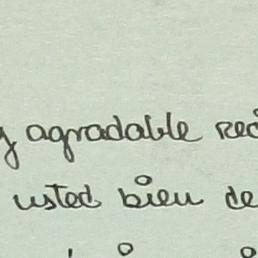 agradable
usted bien de